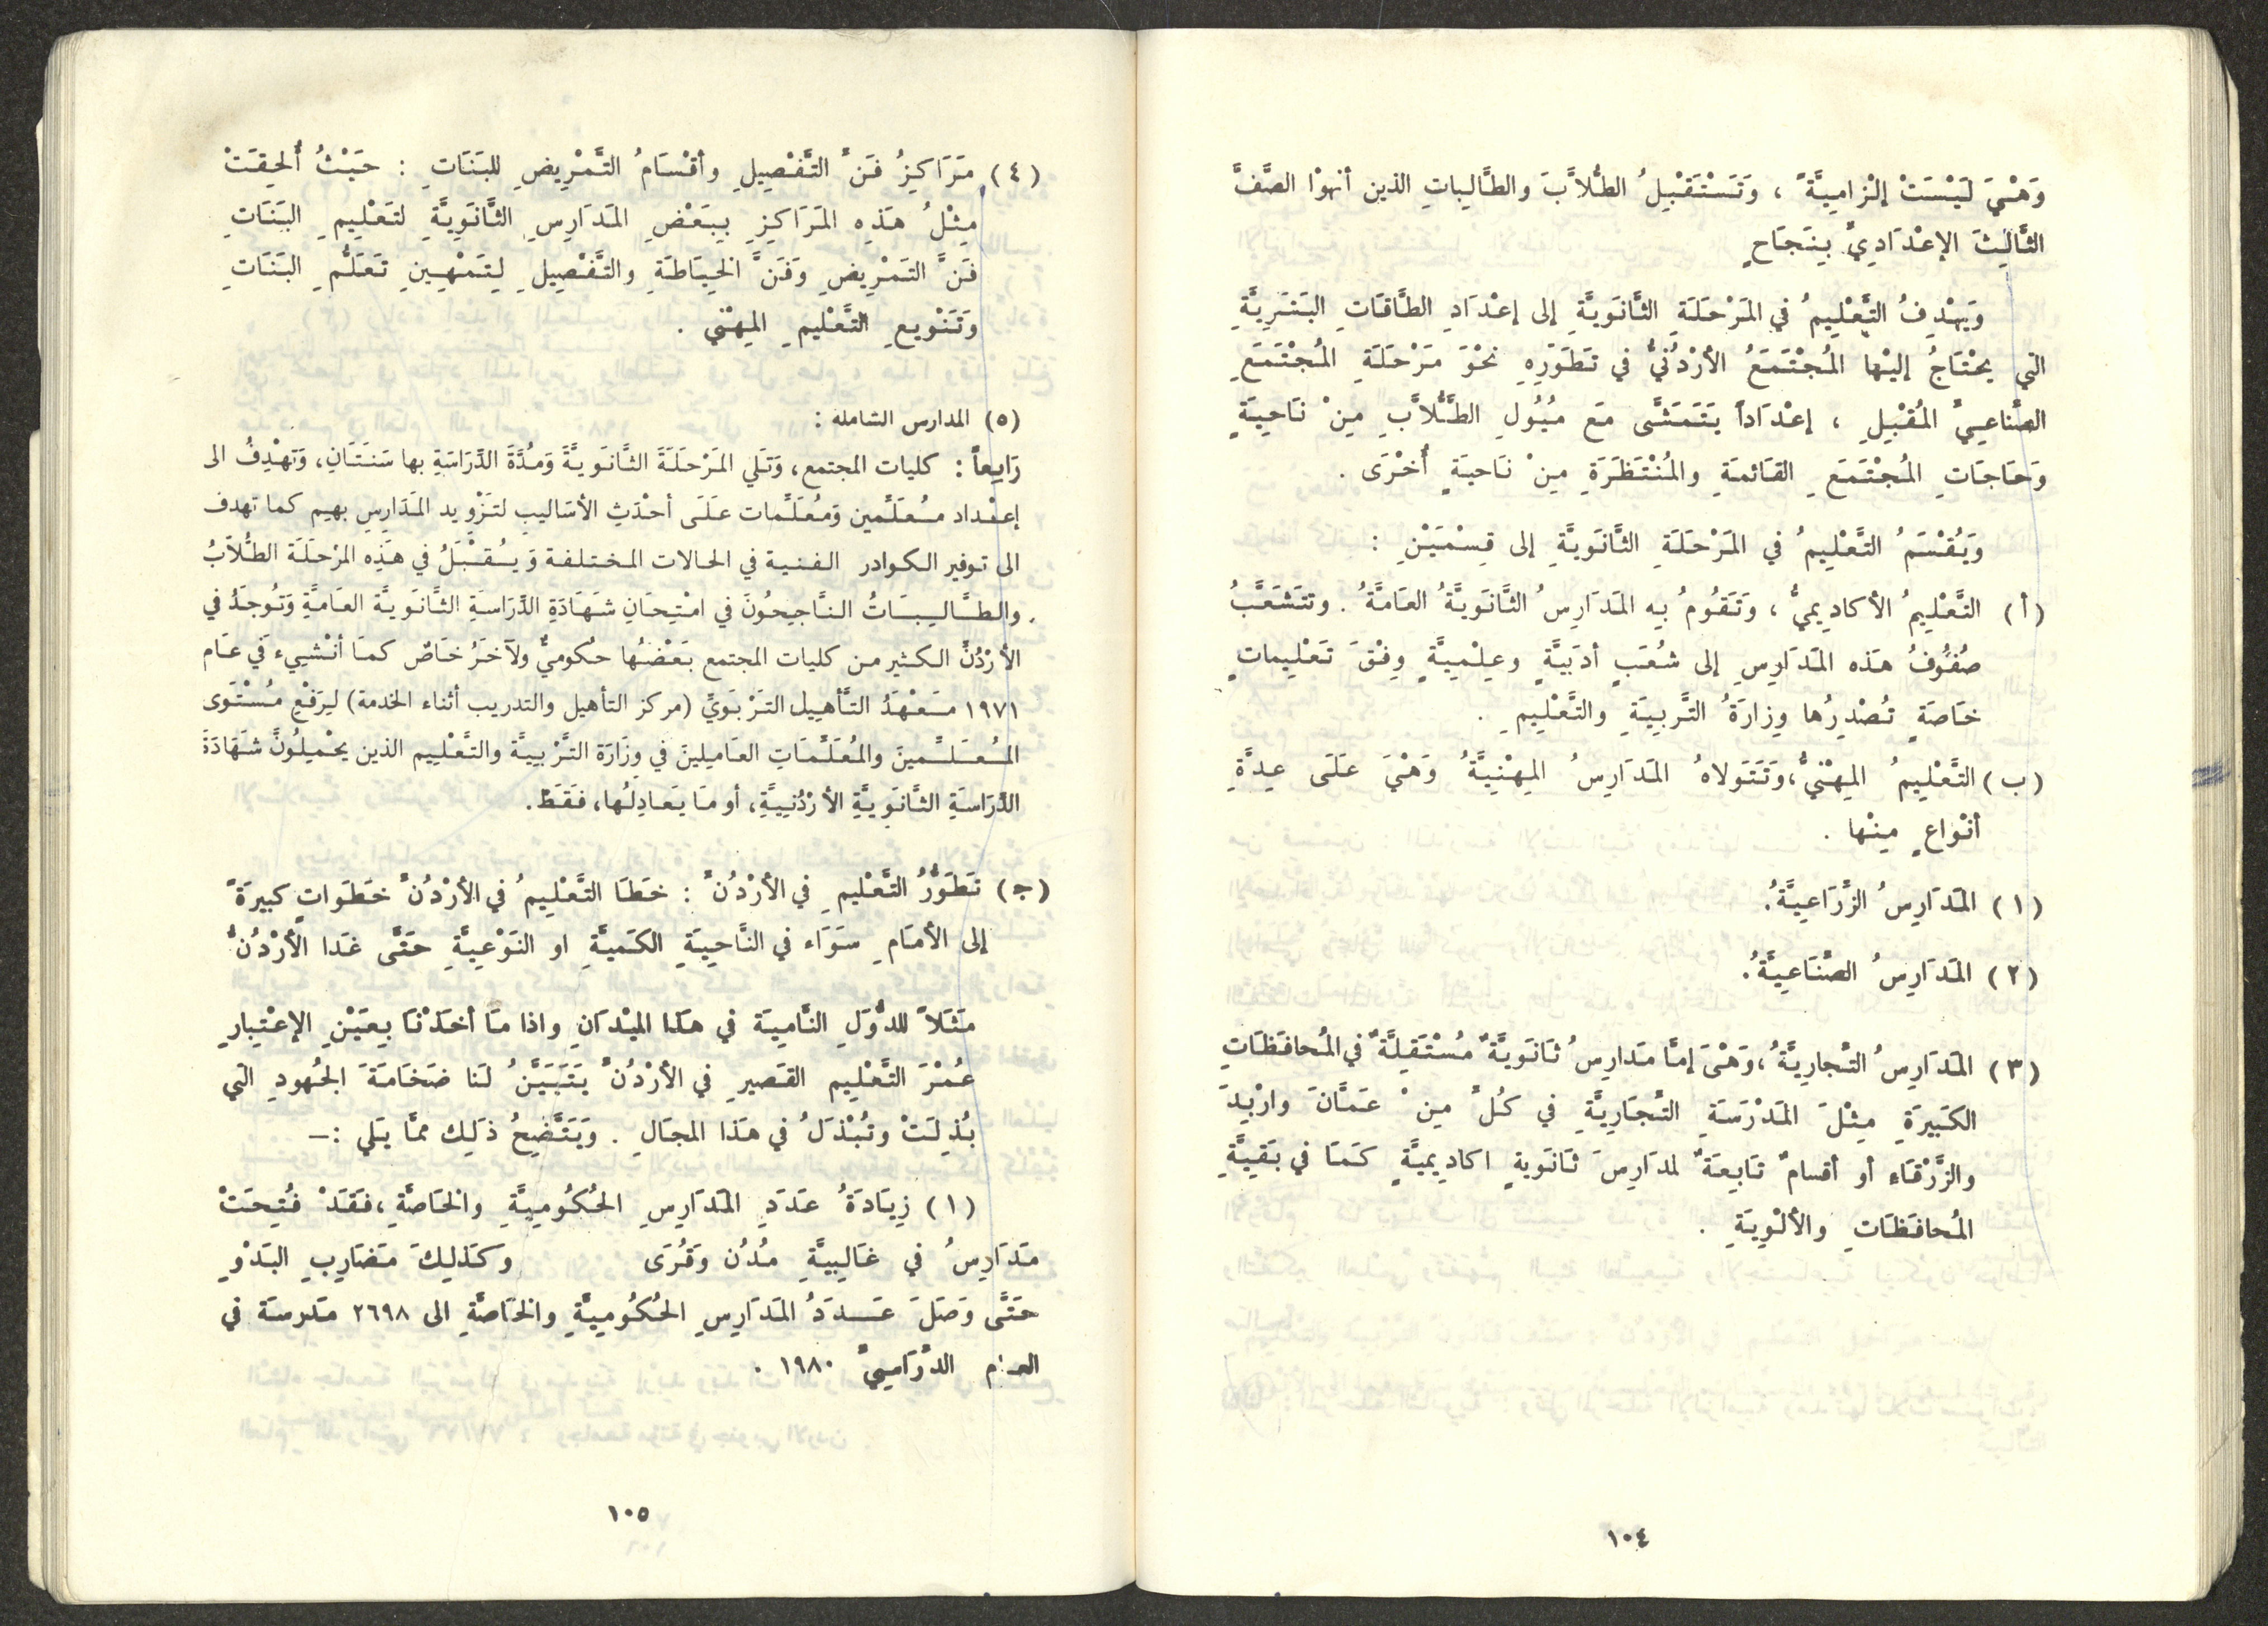 وَهْيَ لَيْسَتْ إلْزامِيَّةً ، وَتَسْتَقْبِلُ الطُّلاَّبَ والطَّالِباتِ الذين أنهوْا الصَّفَّ
الثَّالِثَ الإعْدَادِيَّ بِنَجَاحٍ
وَيَهْدِفُ التَّعْلِيمُ في المَرْحَلَةِ الثَّانَوِيَّةِ إلى إعْدَادِ الطَّاقَاتِ البَشَرِيَّةِ
التي يحْتَاجُ إليْها المُجْتَمَعُ الأرْدُنيُّ في تَطَوُّرِهِ نحْوَ مَرْحَلَةِ المُجْتَمَعِ
الصِّناعِيِّ المُقْبِلِ ، إعْدَاداً يَتَمَشَّى مَع مُيُولِ الطُّلاَّبِ مِنْ نَاحِيَةٍ
وَحَاجَاتِ المُجْتَمَعِ القَائمَةِ والمُنْتَظَرَةِ مِنْ نَاحيَةٍ أُخْرَى .
وَيُقْسَمُ التَّعْلِيمُ في المَرْحَلَةِ الثَّانَوِيَّةِ إلى قِسْمَيْنِ :
(أ) التَّعْلِيمُ الأكادِيميُّ ، وَتَقُومُ بِه المَدَارِسُ الثَّانَوِيَّةُ العَامَّةُ . وتتَشَعَّبُ
صُفُوفُ هَذه المَدَارِسِ إلى شُعَبٍ أدَبِيَّةٍ وعِلْمِيَّةٍ وِفْقَ تَعْلِيماتٍ
خَاصَةٍ تُصْدِرُها وِزارَةُ التَّربِيَةِ والتَّعْلِيمِ .
(ب) التَّعْلِيمُ المِهْنيُّ،وَتَتَولاهُ المَدَارِسُ المِهْنِيَّةُ وَهْيَ عَلَى عِدَّةِ
أنْواعٍ مِنْها .
(١) المَدَارِسُ الزِّرَاعِيَّةُ.
(٢) المَدَارِسُ الصِّنَاعِيَّةُ.
(٣) المَدَارِسُ التِّجارِيَّةُ،وَهْيَ إمَّا مَدَارِسُ ثَانَوِيَّةٌ مُسْتَقِلَّةٌ في المُحافَظَاتِ
الكَبِيرَةِ مِثْلَ المَدْرَسَةِ التِّجَارِيَّةِ في كُلٍّ مِنْ عَمَّانَ وارْبِدَ
والزَّرْقَاء أو أقسامٌ تَابِعَةٌ لمدَارِسَ ثَانَويةٍ اكادِيميَّةٍ كَمَا في بَقيَّةِ
المُحافَظَاتِ والألْوِيَةِ .
١٠٤
(٤) مَرَاكِزُ فَنِّ التَّفْصِيلِ وأقْسَامُ التَّمْرِيضِ للبَنَاتِ : حَيْثُ أُلحِقَتْ
مِثْلُ هَذِه المَرَاكِزِ بِبَعْضِ المَدَارِسِ الثَّانَوِيَّةِ لتَعْلِيمِ البَنَاتِ
فَنَّ التَمْرِيضِ وَفَنَّ الخِيَاطَةِ والتَّفْصِيلِ لِتَمْهِينِ تَعَلُّمِ البَنَاتِ
وَتَنْويعِ التَّعْليمِ المِهْني .
(٥) المدارس الشامله :
رَابِعاً : كليات المجتمع، وَتَلي المَرْحَلَةَ الثَّانَوِيَّةَ وَمُدَّةَ الدِّرَاسَةِ بها سَنَتَانِ، وَتهْدِفُ الى
إعْداد مُعَلِّمين وَمُعَلِّمات عَلَى أحْدَثِ الأسَاليب لتَزْوِيد المَدَارِسِ بهِم كما تهدف
الى توفير الكوادر الفنية في الحالات المختلفة وَيُقْبَلُ في هَذِه المرْحَلَة الطُّلاَبُ
والطَّالِبَاتُ النَّاجِحُونَ في امْتِحَانِ شَهَادَةِ الدِّرَاسَةِ الثَّانَوِيَّة العَامَّةِ وَتُوجَدُ في
الأرْدُنِّ الكثير من كليات المجتمع بَعْضُها حُكوميٌّ ولآخَرُ خَاصٌ كمَا أنْشيىء في عَام
١٩٧١ مَعْهَدُ التَّأهِيل التَرْبَوَيِّ (مركز التأهيل والتدريب أثناء الخدمة) ليرَفْعِ مُسْتَوَى
المُعَلِّمينَ والمُعَلِّمَاتِ العَامِلينَ في وِزَارَة التَّرْبيَّة والتَّعْلِيم الذين يحْمِلُونَ شَهَادَةَ
الدِّرَاسَةِ الثَّانَوِيَّةِ الأرْدُنِيَّةِ، أو مَا يَعَادِلُها، فَقَطْ.
(جـ) تَطَوُّرُ التَّعْليمِ في الأرْدُنِّ : خَطَا التَّعْلِيمُ في الأرْدُنِّ خَطَواتٍ كبيرَةً
إلى الأمَامِ سَوَاء في النَّاحِيَةِ الكَميَّةِ او النَوْعِيَّةِ حَتَّى غَدا الأرْدُنُّ
مَثَلاً للدُّوَلِ النَّامِيَة في هَذا الميْدَانِ واذا مَا أخَذْنَا بِعَيْنِ الإعْتِبارِ
عُمْرَ التَّعْلِيم القَصيرِ في الأرْدُنِّ يَتَبَيَّنُ لَنا ضَخَامَةَ الجُهودِ التي
بُذِلَتْ وتُبْذَلُ في هَذا المجَالِ . وَيَتَّضِحُ ذَلِك ممَّا يَلي :ـ
(١) زِيَادَةُ عَدَدِ المَدَارِسِ الحُكُومِيَّةِ والخَاصَّةِ،فَقَدْ فُتِحَتْ
مَدَارِسُ في غَالِبِيَّةِ مُدُن وَقُرَى وَكَذلِكَ مَضَارِبِ البَدْوِ
حَتَّى وَصَلَ عَدَدُ المَدَارِسِ الحُكُومِيَّةِ والخَاصَّةِ الى ٢٦٩٨ مَدرسَة في
العام الدِّرَاسِيِّ ١٩٨٠ .
١٠٥